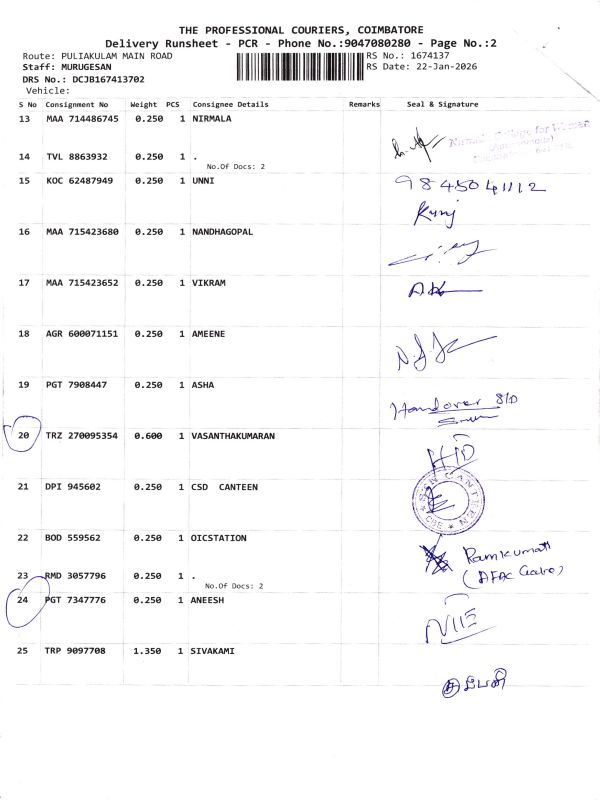 THE PROFESSIONAL COURIERS, COIMBATORE
Delivery Runsheet - PCR - Phone No.:9047080280 - Page No.:2
Route: PULIAKULAM MAIN ROAD RS No.: 1674137
Staff: MURUGESAN RS Date: 22-Jan-2026
DRS No.: DCJB167413702
Vehicle:
S No Consignment No Weight PCS Consignee Details Remarks Seal & Signature
13 MAA 714486745 0.250 1 NIRMALA
College for Women
14 TVL 8863932 0.250 1 .
No.Of Docs: 2
15 KOC 62487949 0.250 1 UNNI
9845041112
16 MAA 715423680 0.250 1 NANDHAGOPAL
17 MAA 715423652 0.250 1 VIKRAM
18 AGR 600071151 0.250 1 AMEENE
19 PGT 7908447 0.250 1 ASHA
Handover
20 TRZ 270095354 0.600 1 VASANTHAKUMARAN
21 DPI 945602 0.250 1 CSD CANTEEN
CANTEEN
CBE
22 BOD 559562 0.250 1 OICSTATION
Ramkumar
23 RMD 3057796 0.250 1 .
No.Of Docs: 2
24 PGT 7347776 0.250 1 ANEESH
25 TRP 9097708 1.350 1 SIVAKAMI